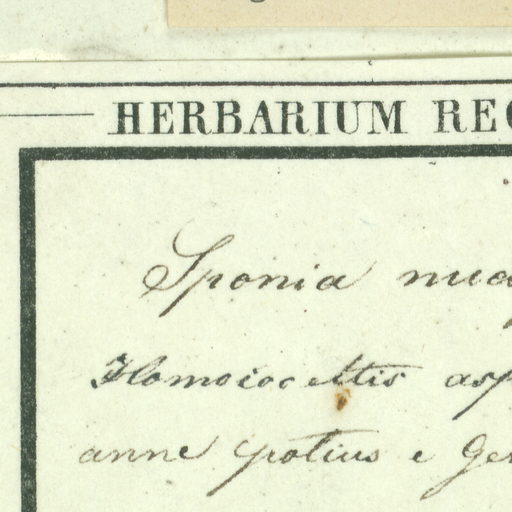 HERBARIUM REG
Sponia
Homoioceltis asp
anne potius e Ger